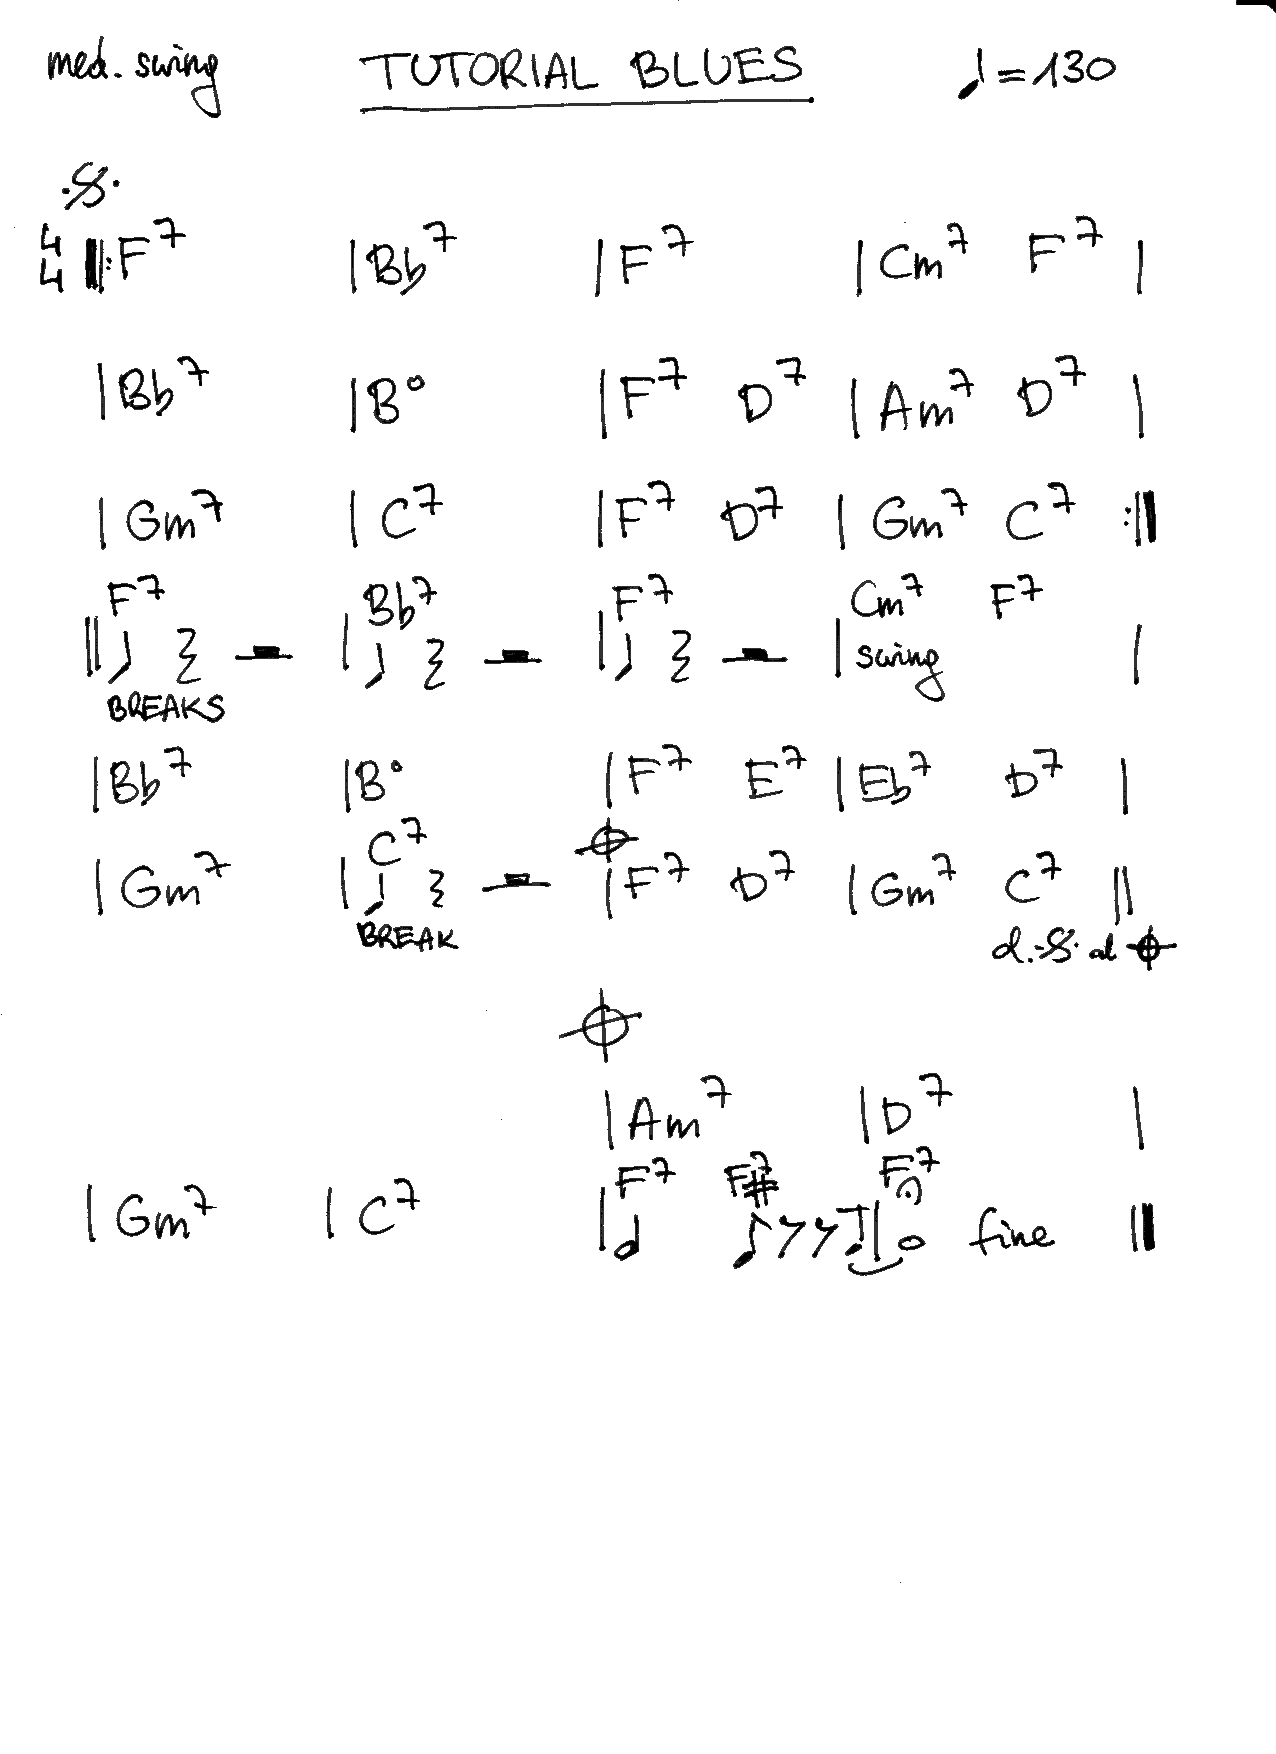 med. swing TUTORIAL BLUES ♩=130
𝄋
4/4 𝄆 F7 | Bb7 | F7 | Cm7 F7 |
| Bb7 | B° | F7 D7 | Am7 D7 |
| Gm7 | C7 | F7 D7 | Gm7 C7 𝄇
F7 Bb7 F7 Cm7 F7
swing
BREAKS
| Bb7 | B° | F7 E7 | Eb7 D7 |
C7 𝄌
| Gm7 | F7 D7 | Gm7 C7 ||
BREAK d.𝄋. al 𝄌
𝄌
| Am7 | D7 |
F7 F#7 F7
| Gm7 | C7 | fine